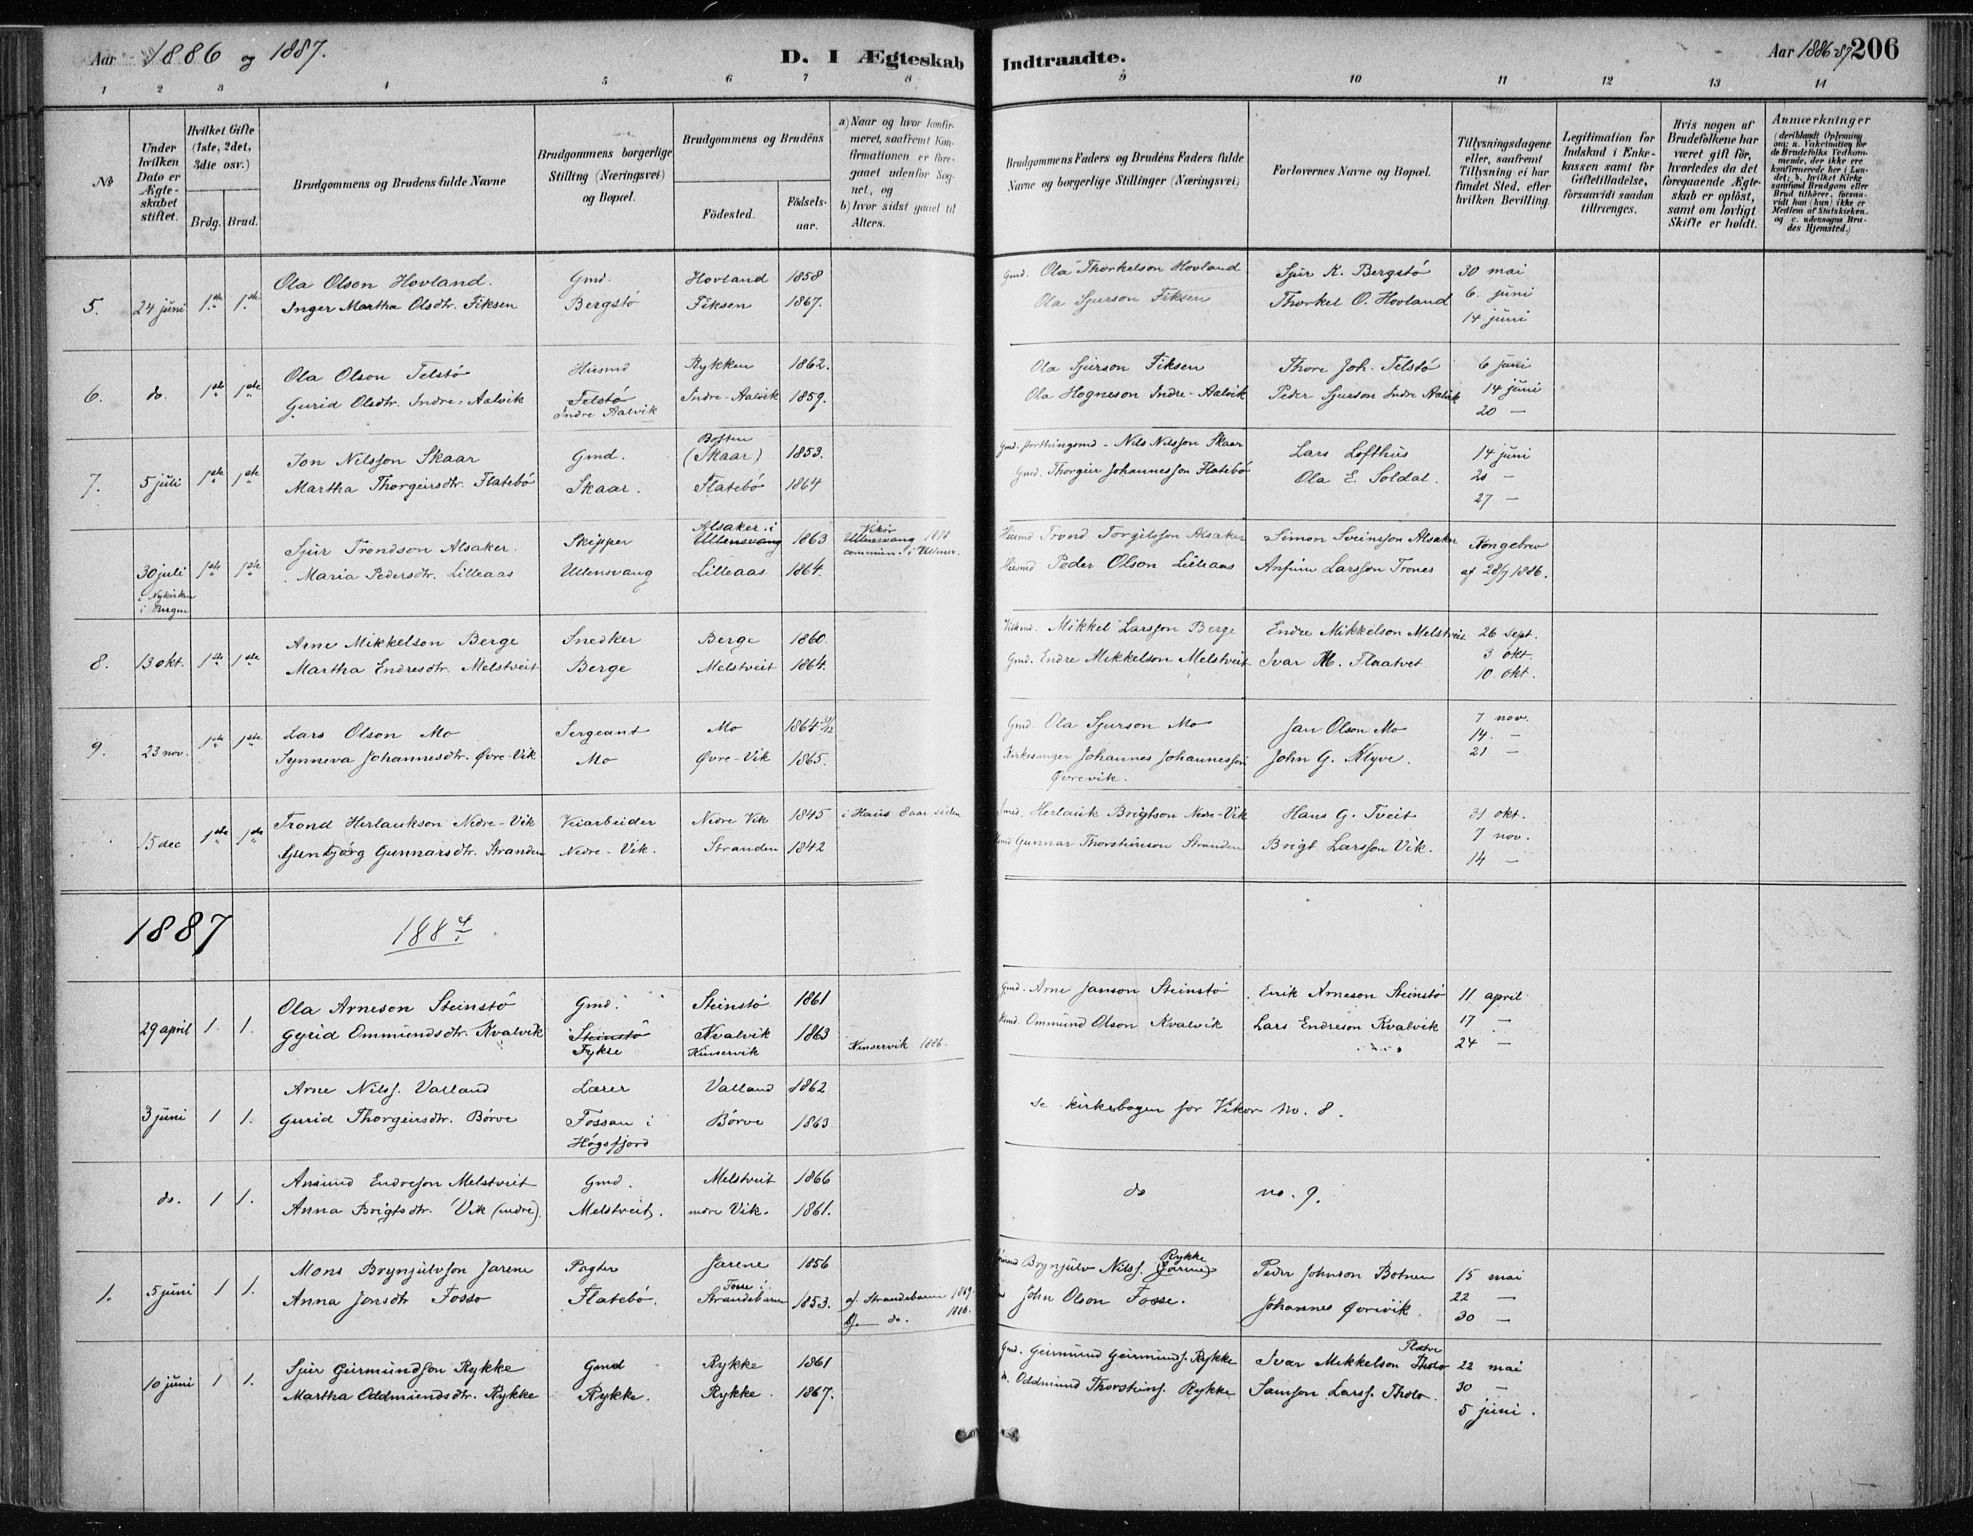 Aar 1886 og 1887.
D. I Ægteskab Indtraadte.
Aar 1886-87 206
1 2 3 4 5 6 7 8 9 10 11 12 13 14
No
Under hvilken Dato er Ægteskabet stiftet.
Hvilket Gifte (1ste, 2det, 3die osv.)
Brdg. Brud.
Brudgommens og Brudens fulde Navne
Brudgommens borgerlige Stilling (Næringsvei) og Bopæl.
Brudgommens og Brudens
Födested.
Födselsaar.
a) Naar og hvor konfirmeret, saafremt Konfirmationen er foregaaet udenfor Sognet, og
b) hvor sidst gaaet til Alters.
Brudgommens Faders og Brudens Faders fulde Navne og borgerlige Stillinger (Næringsvei)
Forlovernes Navne og Bopæl.
Tillysningsdagene eller, saafremt Tillysning ei har fundet Sted, efter hvilken Bevilling.
Legitimation for Indskud i Enkekassen samt for Giftetilladelse, forsaavidt saadan tiltrænges.
Hvis nogen af Brudefolkene har været gift för, hvorledes da det foregaaende Ægteskab er oplöst, samt om lovligt Skifte er holdt.
Anmærkninger
(deriblandt Oplysning om: a. Vakcination for de Brudefolks Vedkommende, der ikke ere konfirmerede her i Landet; b. hvilket Kirkesamfund Brudgom eller Brud tilhörer, forsaavidt han (hun) ikke er Medlem af Statskirken, og c. udensogns Brudes Hjemsted.)
5. 24 juni 1ste 1ste
Ola Olson Hovland. Gmd. Hovland 1858 Gmd. Ola Thorkelson Hovland Sjur K. Bergstø 30 mai
Inger Martha Olsdtr. Fiksen Bergstø Fiksen 1867. Ola Sjurson Fiksen Thorkel O. Hovland 6. juni
14 juni
6. do. 1ste 1ste
Ola Olson Telstø Husmd Rykken 1862. Ola Sjurson Fiksen Thore Joh. Telstø 6 juni
Gurid Olsdtr. Indre-Aalvik Telstø Indre-Aalvik 1859. Ola Hogneson Indre-Aalvik Peder Sjurson Indre Aalvik 14 juni
Indre Aalvik 20 —
7. 5 juli 1ste 1ste
Jon Nilsson Skaar Gmd. (Skaar) 1853. Gmd. Storthingsmd - Nils Nilsson Skaar Lars Lofthus 14 juni
Martha Thorgeirsdtr. Flatebø Skaar. Flatebø 1864 Gmd. Thorgier Johannesson Flatebø Ola E. Soldal. 20 —
27 —
30 juli 1ste 1ste
i Nykirken i Bergen
Sjur Trondson Alsaker. Skipper Alsaker i Ullensvang 1863 Vikør Ullensvang commun. i Ullensv. Husmd Trond Torgilsson Alsaker Simon Sveinsson Alsaker Kongebrev
Maria Pedersdtr. Lilleaas Ullensvang Lilleaas 1864. Husmd Peder Olson Lilleaas Anfinn Larsson Trones af 28/7 1886.
8. 13 okt. 1ste 1ste
Arne Mikkelson Berge Snedker Berge 1860. Mikkel Larsson Berge Endre Mikkelson Melstveit 26 sept.
Martha Endresdtr. Melstveit Berge Melstveit 1864. Gmd. Endre Mikkelson Melstveit Ivar M. Flaatvet 3 okt.
10 okt.
9. 23 nov. 1ste 1ste
Lars Olson Mo Sergeant Mo 1864 Gmd. Ola Sjurson Mo Jan Olson Mo 7 nov.
Synneva Johannesdtr. Øvre-Vik Mo Øvre-Vik 1865. Kirkesanger Johannes Johannesson Øvrevik. John G. Klyve. 14. —
21 —
15 dec 1ste 1ste
Trond Herlaukson Nedre-Vik Veiarbeider Nedre Vik 1845 i Haus 8 aar siden Gmd. Herlauk Brigtson Nedre-Vik Hans G. Tveit 31 okt.
Gunbjørg Gunnarsdtr. Stranden Nedre-Vik. Stranden 1842 Gunnar Thorsteinson Stranden Brigt Larsson Vik. 7 nov.
14 —
1887
29 april 1. 1.
Ola Arneson Steinstø Gmd. Steinstø 1861 Gmd. Arne Janson Steinstø Eirik Arneson Steinstø 11 april
Gyrid Ommundsdtr. Kvalvik Steinstø Fykse Kvalvik Kinservik 1863 Kinservik 1886. Ommund Olson Kvalvik Lars Endreson Kvalvik 17 —
24 —
3 juni 1 1.
Arne Nilss. Valland Lærer Valland 1862
Gurid Thorgeirsdtr. Børve Fossan i Høgsfjord Børve 1863 se kirkebogen for Vikør No. 8.
do. 1 1.
Amund Endreson Melstveit Gmd. Melstveit 1866
Anna Brigtsdtr. Vik (nedre). Melstveit. nedre Vik. 1861. do no. 9.
1. 5 juni 1 1.
Mons Brynjulvson Jarene Pagter Jarene 1856 Brynjulv Nilss. Rykke (Jarene) Peder Johnson Botnen 15 mai
Anna Jonsdtr Fosso Flatebø. Fosse i Strandebarm 1853. a) Strandebarm 1869. b) — do. 1886. John Olson Fosse. Johannes Øvrevik. 22 —
30 —
10 juni 1 1.
Sjur Geirmundson Rykke Gmd Rykke 1861 Gmd. Geirmund Geirmunds. Rykke Ivar Mikkelson Tholo 22 mai
Martha Oddmundsdtr. Rykke Rykke. Rykke. 1867. Oddmund Thorsteins. Rykke Samson Larss. Tholo. 30 —
5 juni.